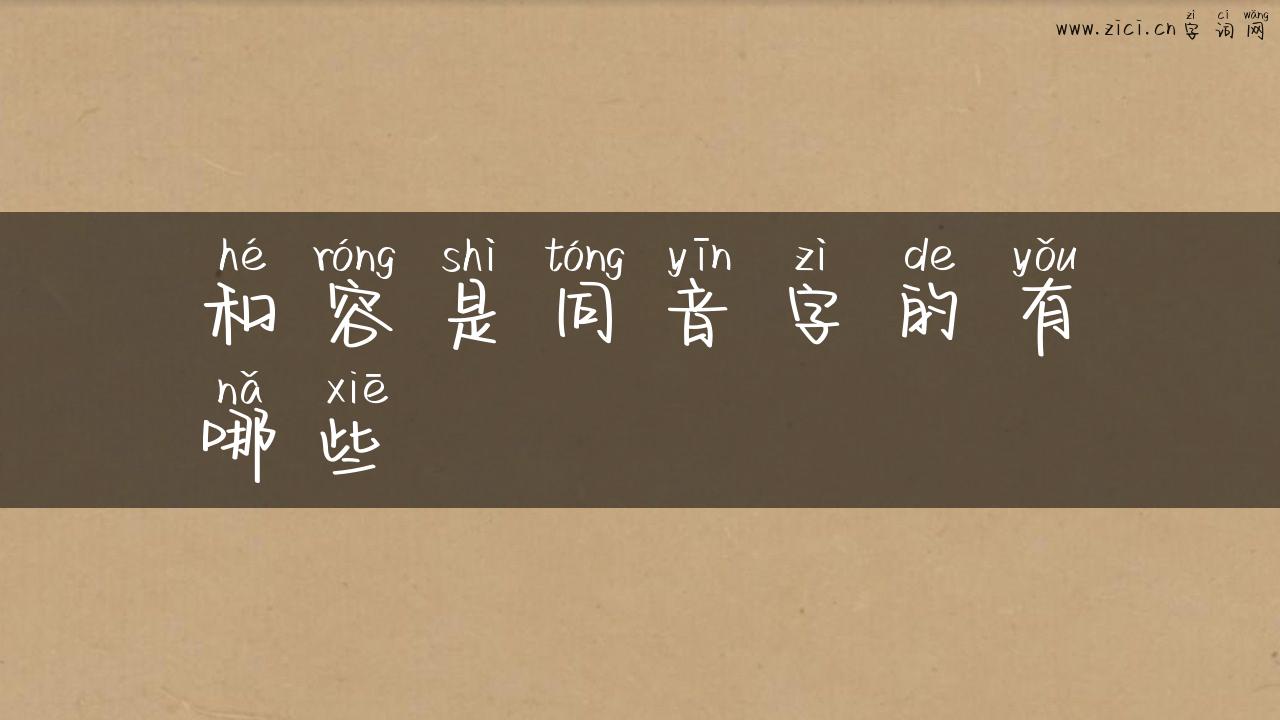 zì cí wǎng
www.zici.cn 字词网
hé róng shì tóng yīn zì de yǒu
和容是同音字的有
nǎ xiē
哪些